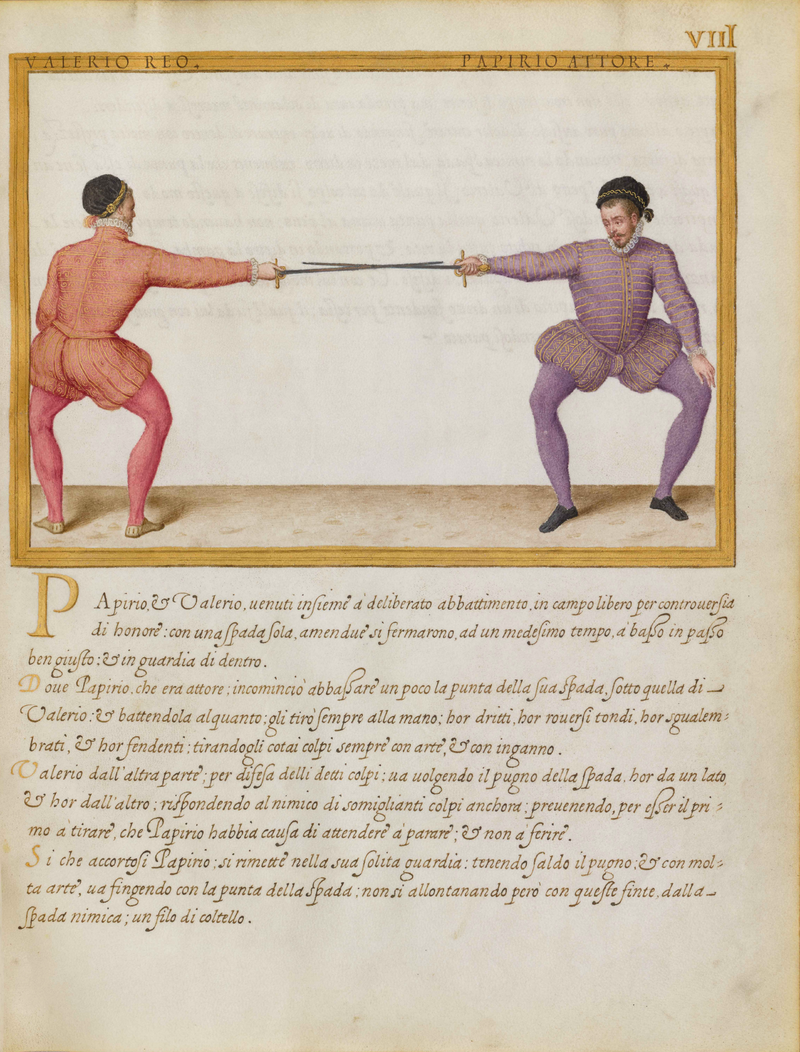 VIII
VALERIO REO.
PAPIRIO ATTORE.
PApirio, & Valerio, uenuti insieme à deliberato abbattimento, in campo libero per controuersia
di honore: con una spada sola, amendue si fermarono, ad un medesimo tempo, à basso in passo
ben giusto: & in guardia di dentro.
Doue Papirio, che era attore; incominciò abbassare un poco la punta della sua spada, sotto quella di
Valerio: & battendola alquanto; gli tirò sempre alla mano; hor dritti, hor rouersi tondi, hor sgualem=
brati, & hor fendenti; tirandogli cotai colpi sempre con arte, & con inganno.
Valerio dall'altra parte; per difesa delli detti colpi; ua uolgendo il pugno della spada, hor da un lato,
& hor dall'altro; rispondendo al nimico di somiglianti colpi anchora; preuenendo, per esser il pri=
mo à tirare, che Papirio habbia causa di attendere à parare; & non à ferire.
Si che accortosi Papirio; si rimette nella sua solita guardia: tenendo saldo il pugno; & con mol=
ta arte, ua fingendo con la punta della spada; non si allontanando però con queste finte, dalla
spada nimica; un filo di coltello.